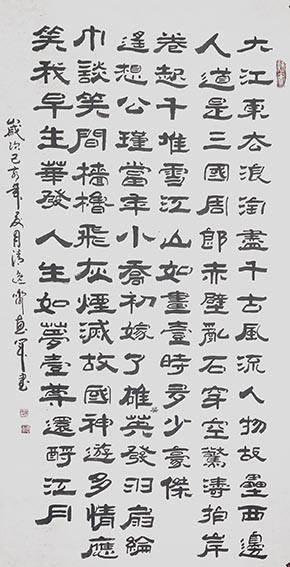 大江東去浪淘盡千古風流人物故壘西邊
人道是三國周郎赤壁亂石穿空驚濤拍岸
卷起千堆雪江山如畫壹時多少豪傑
遙想公瑾當年小喬初嫁了雄英發羽扇綸
巾談笑間檣櫓飛灰煙滅故國神遊多情應
笑我早生華發人生如夢壹尊還酹江月
歲次己亥年夏月清逸齋惠軍書